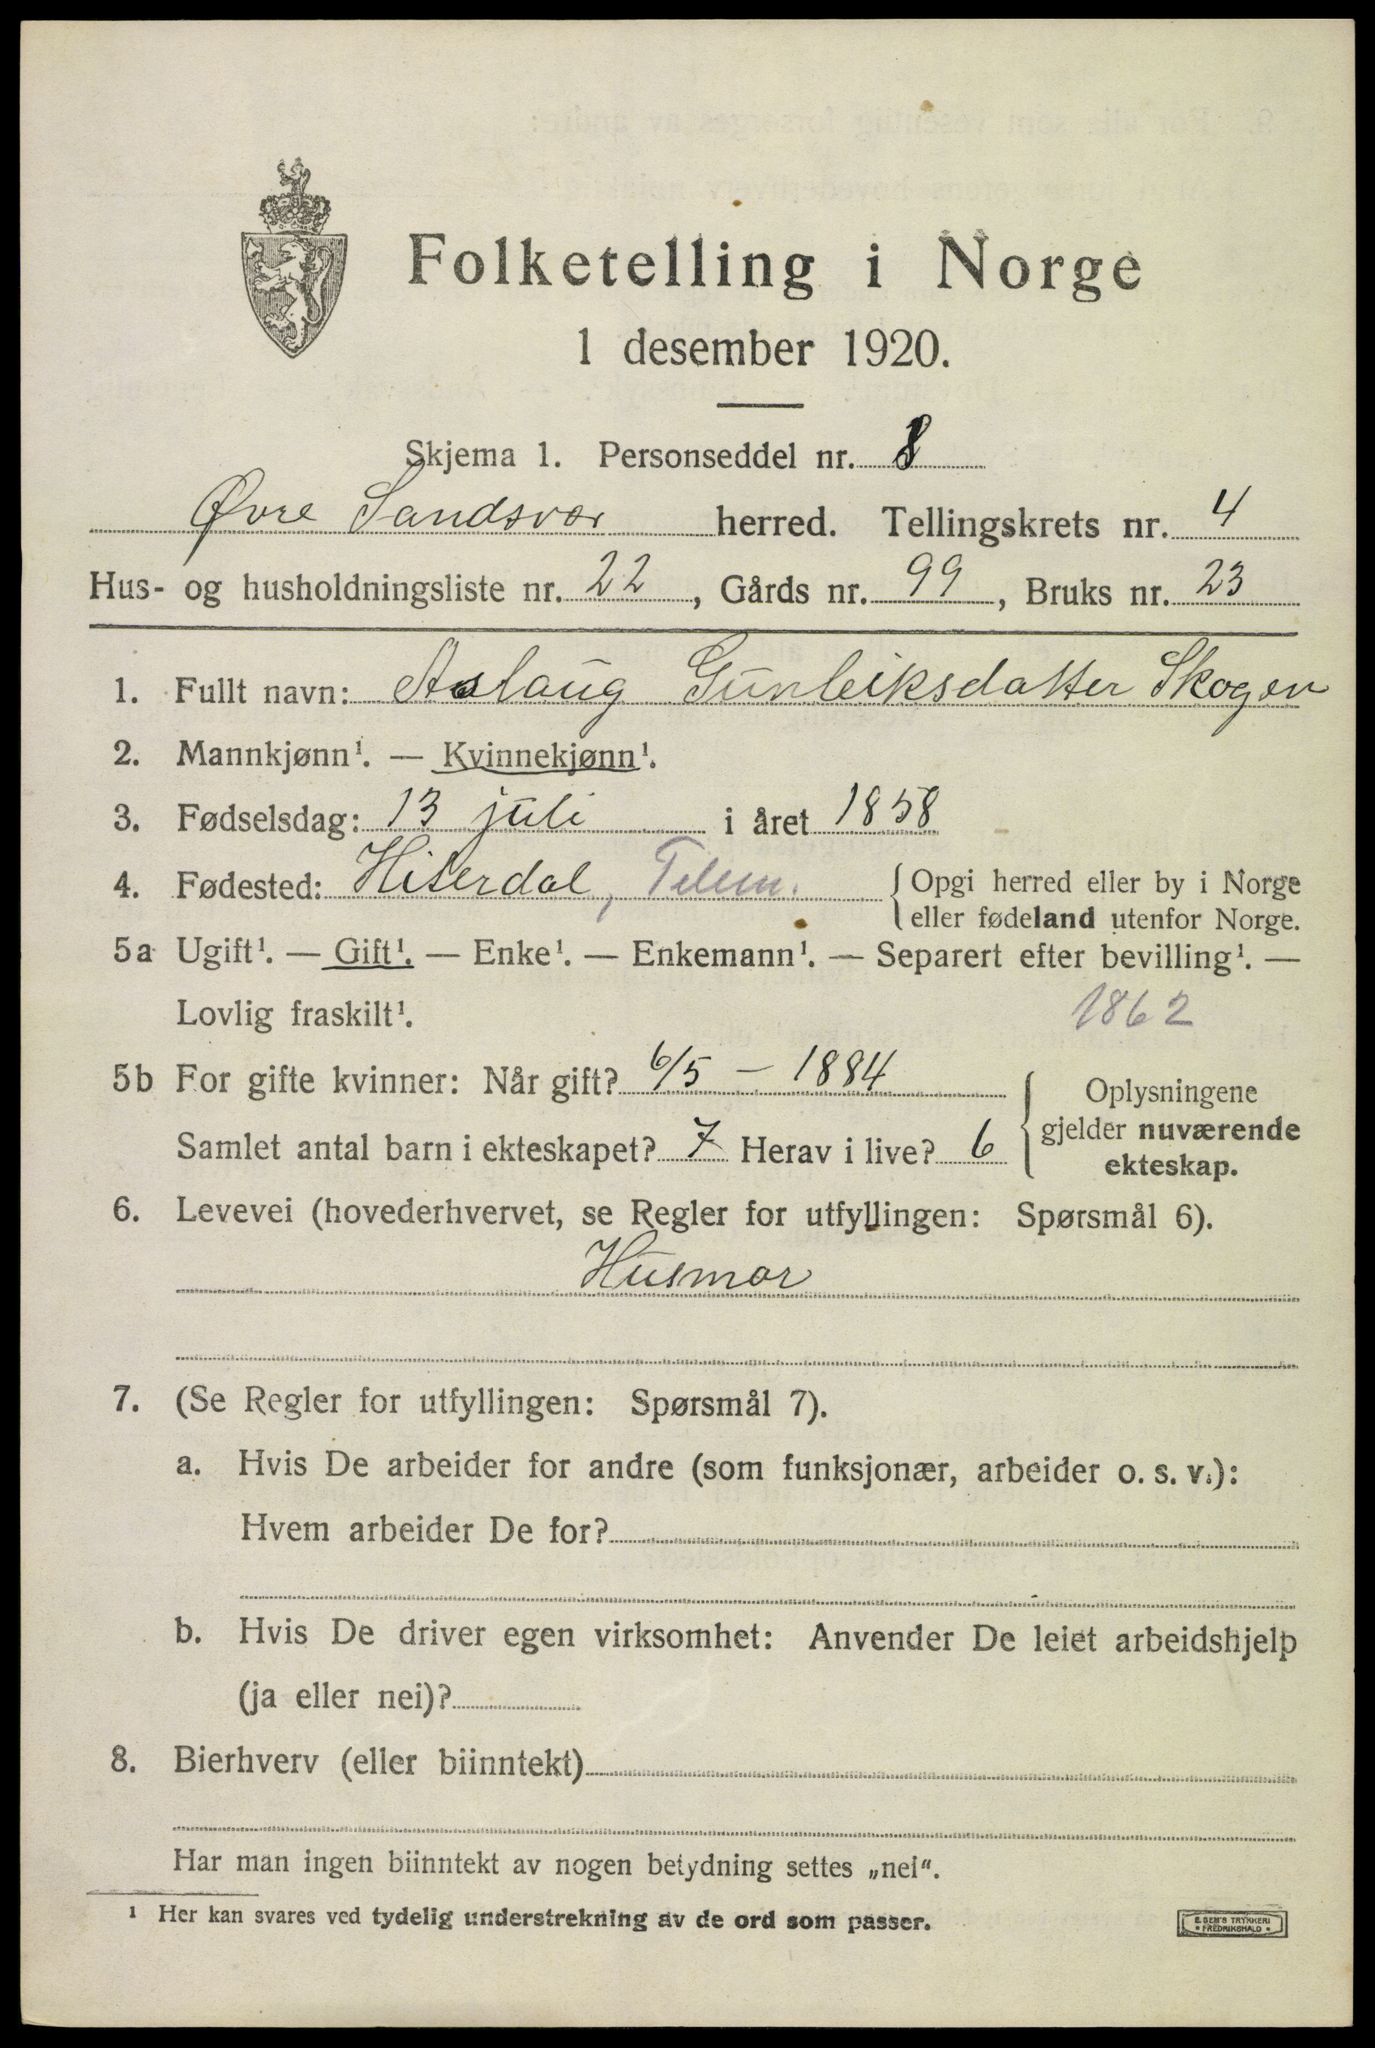 Folketelling i Norge
1 desember 1920.
Skjema 1. Personseddel nr. 8
Øvre Sandsvær herred. Tellingskrets nr. 4
Hus- og husholdningsliste nr. 22, Gårds nr. 99, Bruks nr. 23
1. Fullt navn: Aslaug Gunleiksdatter Skogen
2. Mannkjønn¹. — Kvinnekjønn¹.
3. Fødselsdag: 13 juli i året 1858
4. Fødested: Hiterdal, Telem. { Opgi herred eller by i Norge
eller fødeland utenfor Norge.
5a Ugift¹. — Gift¹. — Enke¹. — Enkemann¹. — Separert efter bevilling¹. —
Lovlig fraskilt¹. 1862
5b For gifte kvinner: Når gift? 6/5 – 1884
Samlet antal barn i ekteskapet? 7 Herav i live? 6
{ Oplysningene
gjelder nuværende
ekteskap.
6. Levevei (hovederhvervet, se Regler for utfyllingen: Spørsmål 6).
Husmor
7. (Se Regler for utfyllingen: Spørsmål 7).
a. Hvis De arbeider for andre (som funksjonær, arbeider o. s. v.):
Hvem arbeider De for?
b. Hvis De driver egen virksomhet: Anvender De leiet arbeidshjelp
(ja eller nei)?
8. Bierhverv (eller biinntekt)
Har man ingen biinntekt av nogen betydning settes „nei“.
¹ Her kan svares ved tydelig understrekning av de ord som passer.
E. SEM'S TRYKKERI
• FREDRIKSHALD •